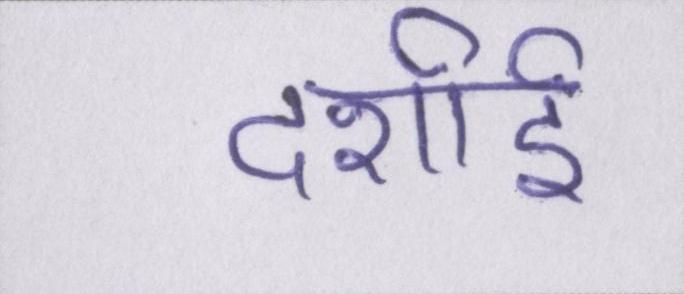 दर्शाई